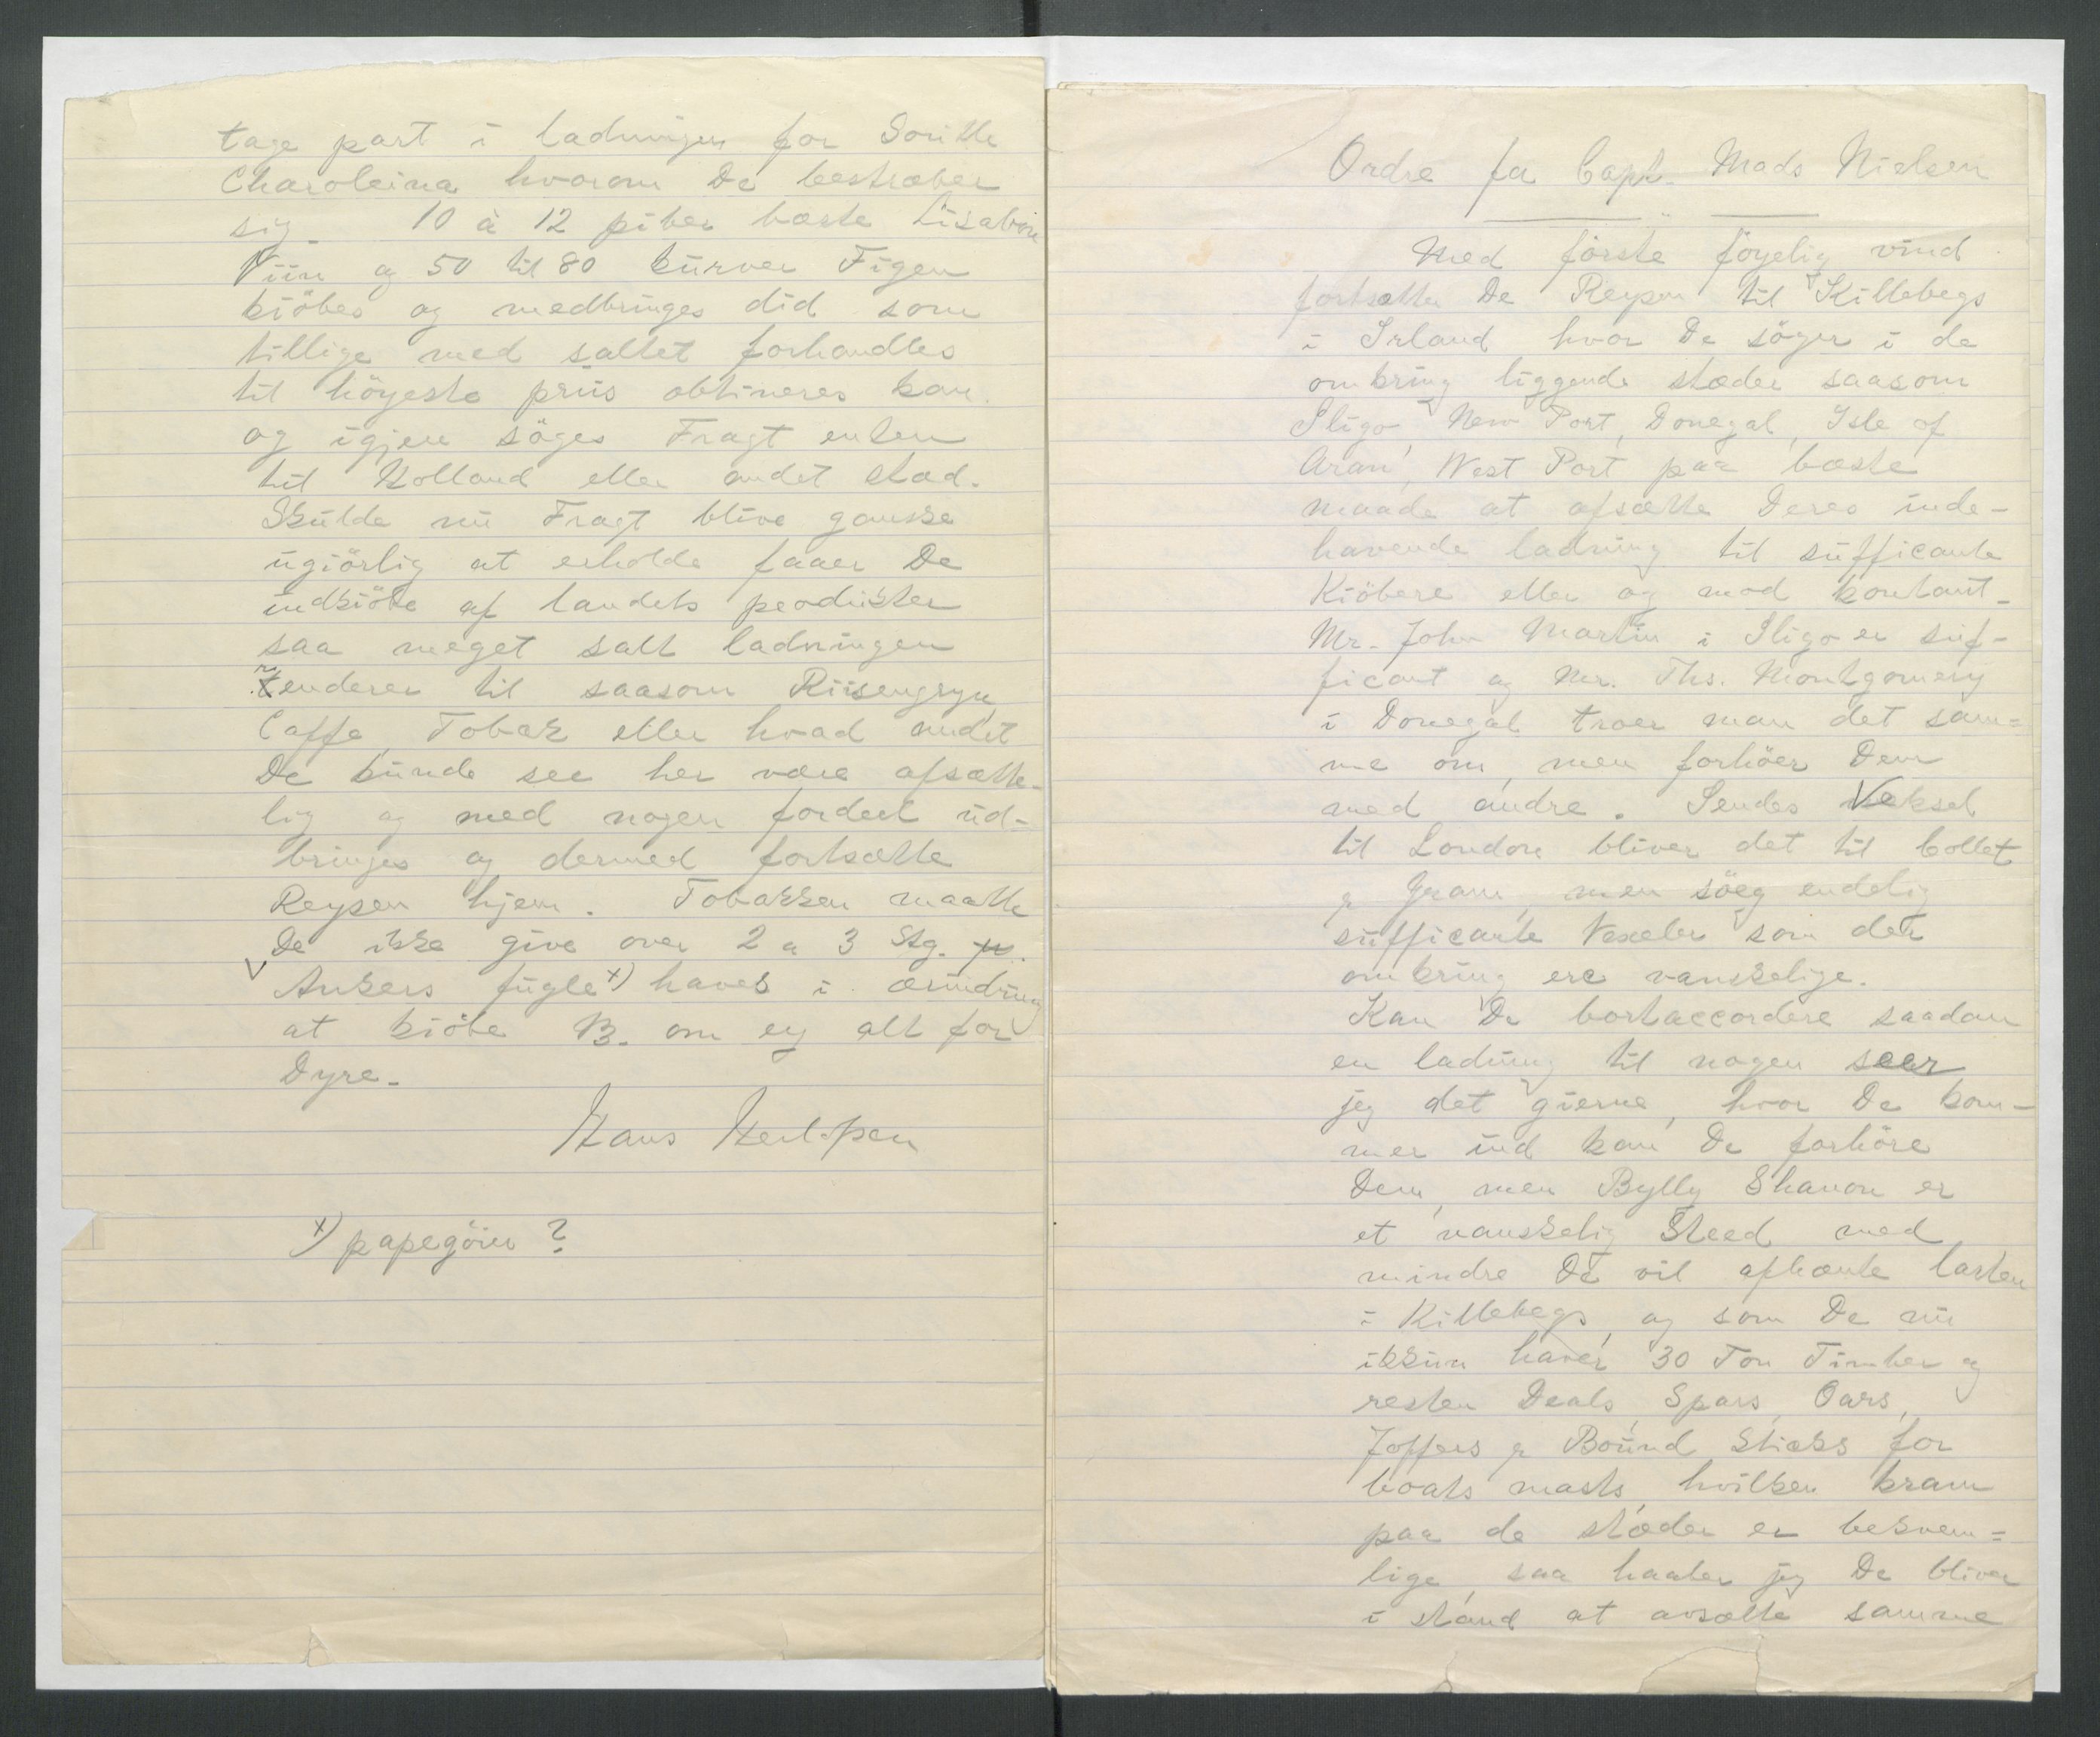 tage part i ladningen for Soritte
Charoleina hvorom De bestræber
sig. 10 à 12 piber bæste Lisabon
Viin og 50 til 80 kürver Figen
kiöbes og medbringes did som
tillige med saltet forhandles
til höyeste priis obtineres kan.
og igjen söges Fragt enten
til Holland eller andet stad.
Skülde nü Fragt blive ganske
ügiörlig at erholde faaer De
indkiöbe af landets prodükter
saa meget salt ladningen
renderer til saasom Riisengryn,
Caffe, Tobak eller hvad andet
De künde see her være afsætte-
lig og med nogen fordeel üd-
bringes og dermed fortsætte
Reysen hjem. Tobakken maatte
De ikke give over 2 a 3 Stg.
Ankers fügle x) haves i ærindring
at kiöbe B. om ey alt for
Dyre.
Hans Herlofsen
x) papegöier ?
Ordre for Capt. Mads Nielsen
Med förste föyelig vind
fortsætter De Reysen til Killebegs
i Irland hvor De söger i de
omkring liggende stæder saasom
Sligo, New Port, Donegal, Isle of
Aran, West Port paa bæste
maade at afsætte Deres inde-
havende ladning til süfficante
Kiöbere eller og mod kontant-
Mr. John Martin i Sligo er süf-
ficant og Mr. Ths. Montgomery
i Donegal troer man det sam=
me om, men forhöer Dem
med andre. Sendes Veksel
til London bliver det til Collet
& Gram, men söeg endelig
süfficante Vexeler som der
omkring ere vanskelige.
Kan De bortaccordere saadan
en ladning til nogen seer
jeg det gierne, hvor De kom-
mer ind kan De forhöre
Dem, men Bylly Shanon er
et vanskelig Steed med
mindre De vil afhænte lasten
i Killebegs, og som De nü
ikkün haver 30 Ton Timber og
resten Deals, Spars, Oars,
Joffers & Boünd Stieks for
boats masts, hvilken kram
paa de stæder er bekvem=
lige, saa haaber jeg De bliver
i stand at avsætte samme